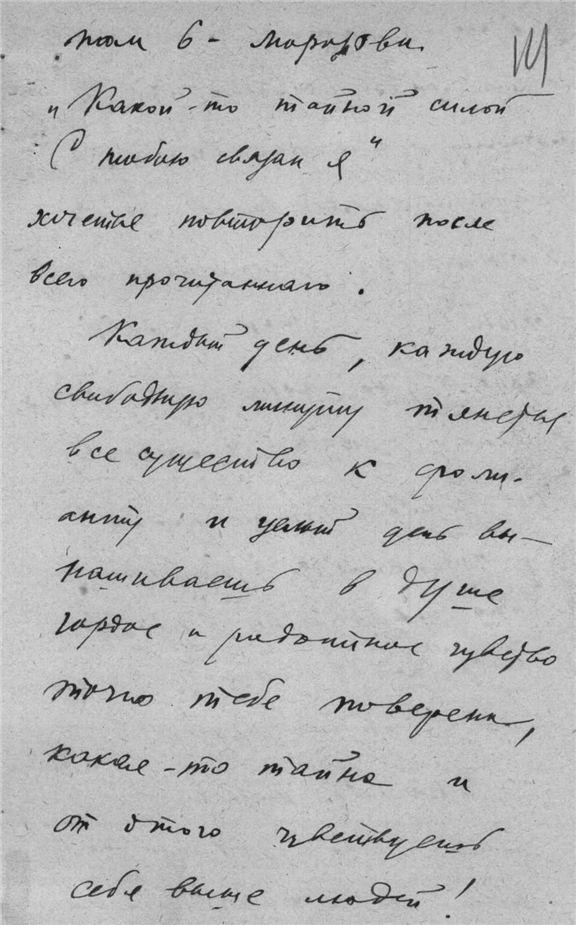 том 6 - Морозова
„Какой-то тайной силой
С тобою связан я"
хочется повторить после
всего прочитаннаго.
Каждый день, каждую
свободную минуту тянется
все существо к фоли-
анту и целый день вы-
нашиваешь в душе
гордое и радостное чувство
точно тебе поверена,
какая-то тайна и
от этого чувствуешь
себя выше людей!